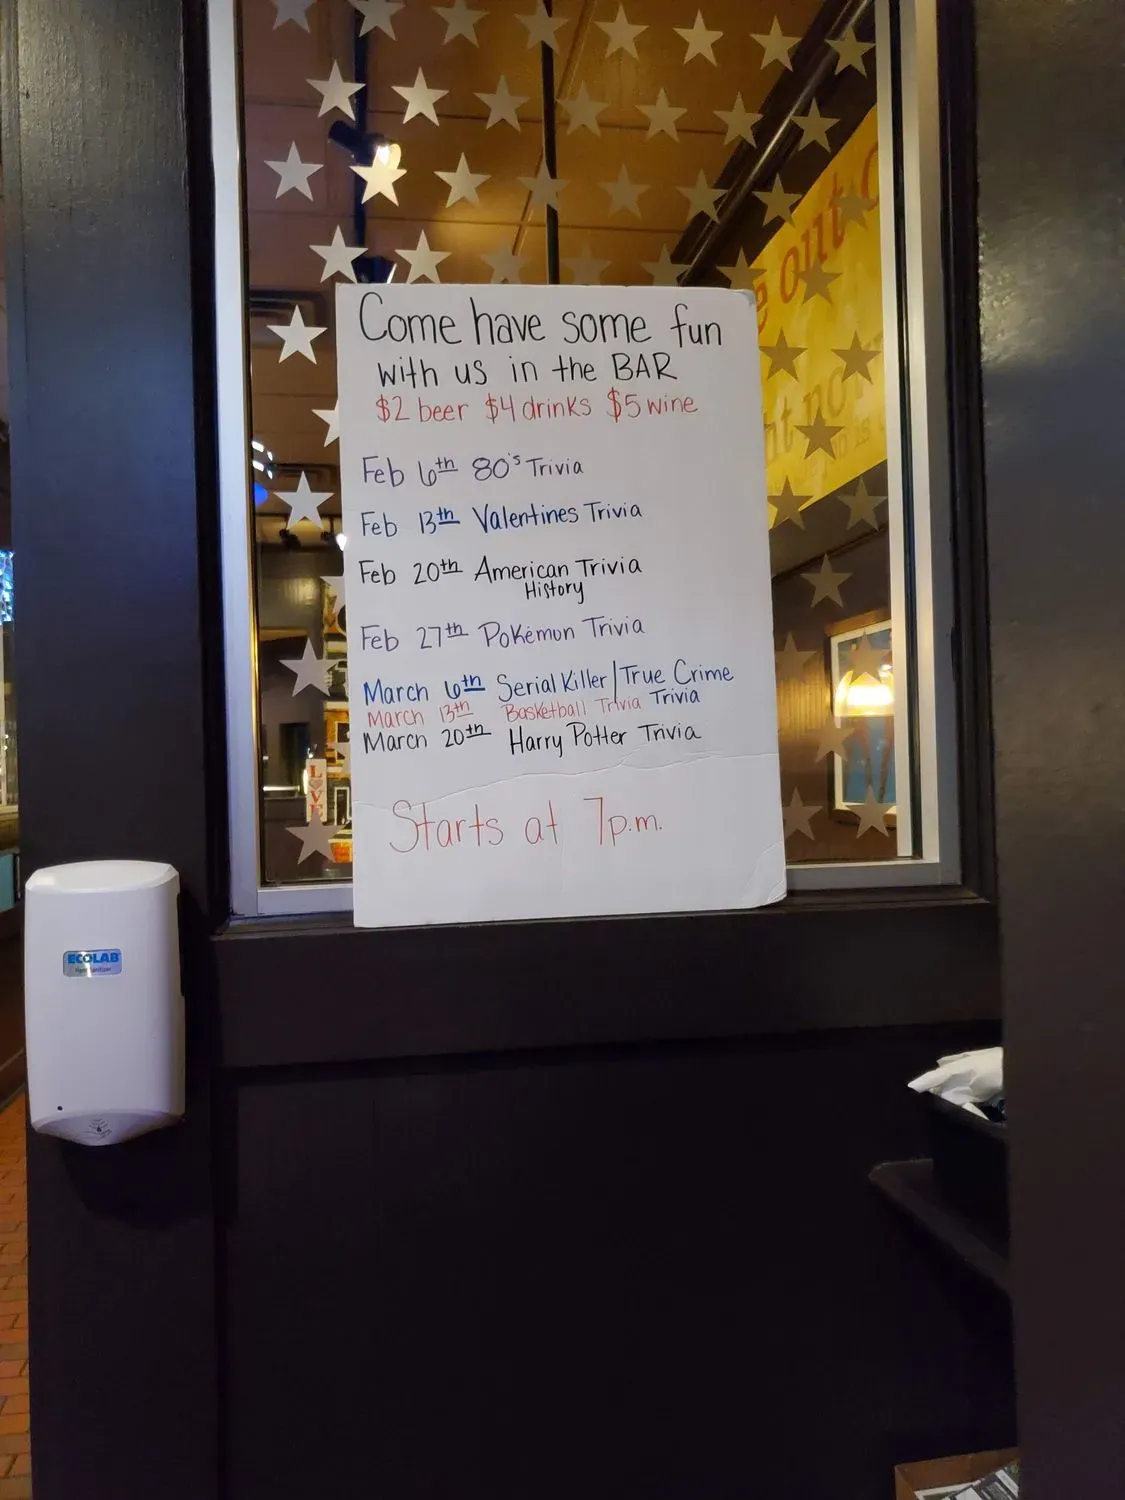 Come have some fun
with us in the BAR
$2 beer $4 drinks $5 wine
Feb 6th 80's Trivia
Feb 13th Valentines Trivia
Feb 20th American Trivia
History
Feb 27th Pokémon Trivia
March 6th Serial Killer/True Crime
Trivia
March 13th Basketball Trivia
March 20th Harry Potter Trivia
Starts at 7p.m.
ECOLAB
Hand Sanitizer
LOVE
out